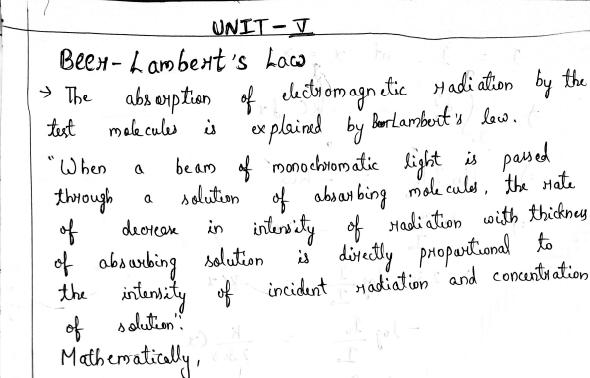 UNIT - V
Beer-Lambert's Law
→ The absorption of electromagnetic radiation by the
test molecules is explained by Beer Lambert's law.
"When a beam of monochromatic light is passed
through a solution of absorbing molecules, the rate
of decrease in intensity of radiation with thickness
of absorbing solution is directly proportional to
the intensity of incident radiation and concentration
of solution".
Mathematically,